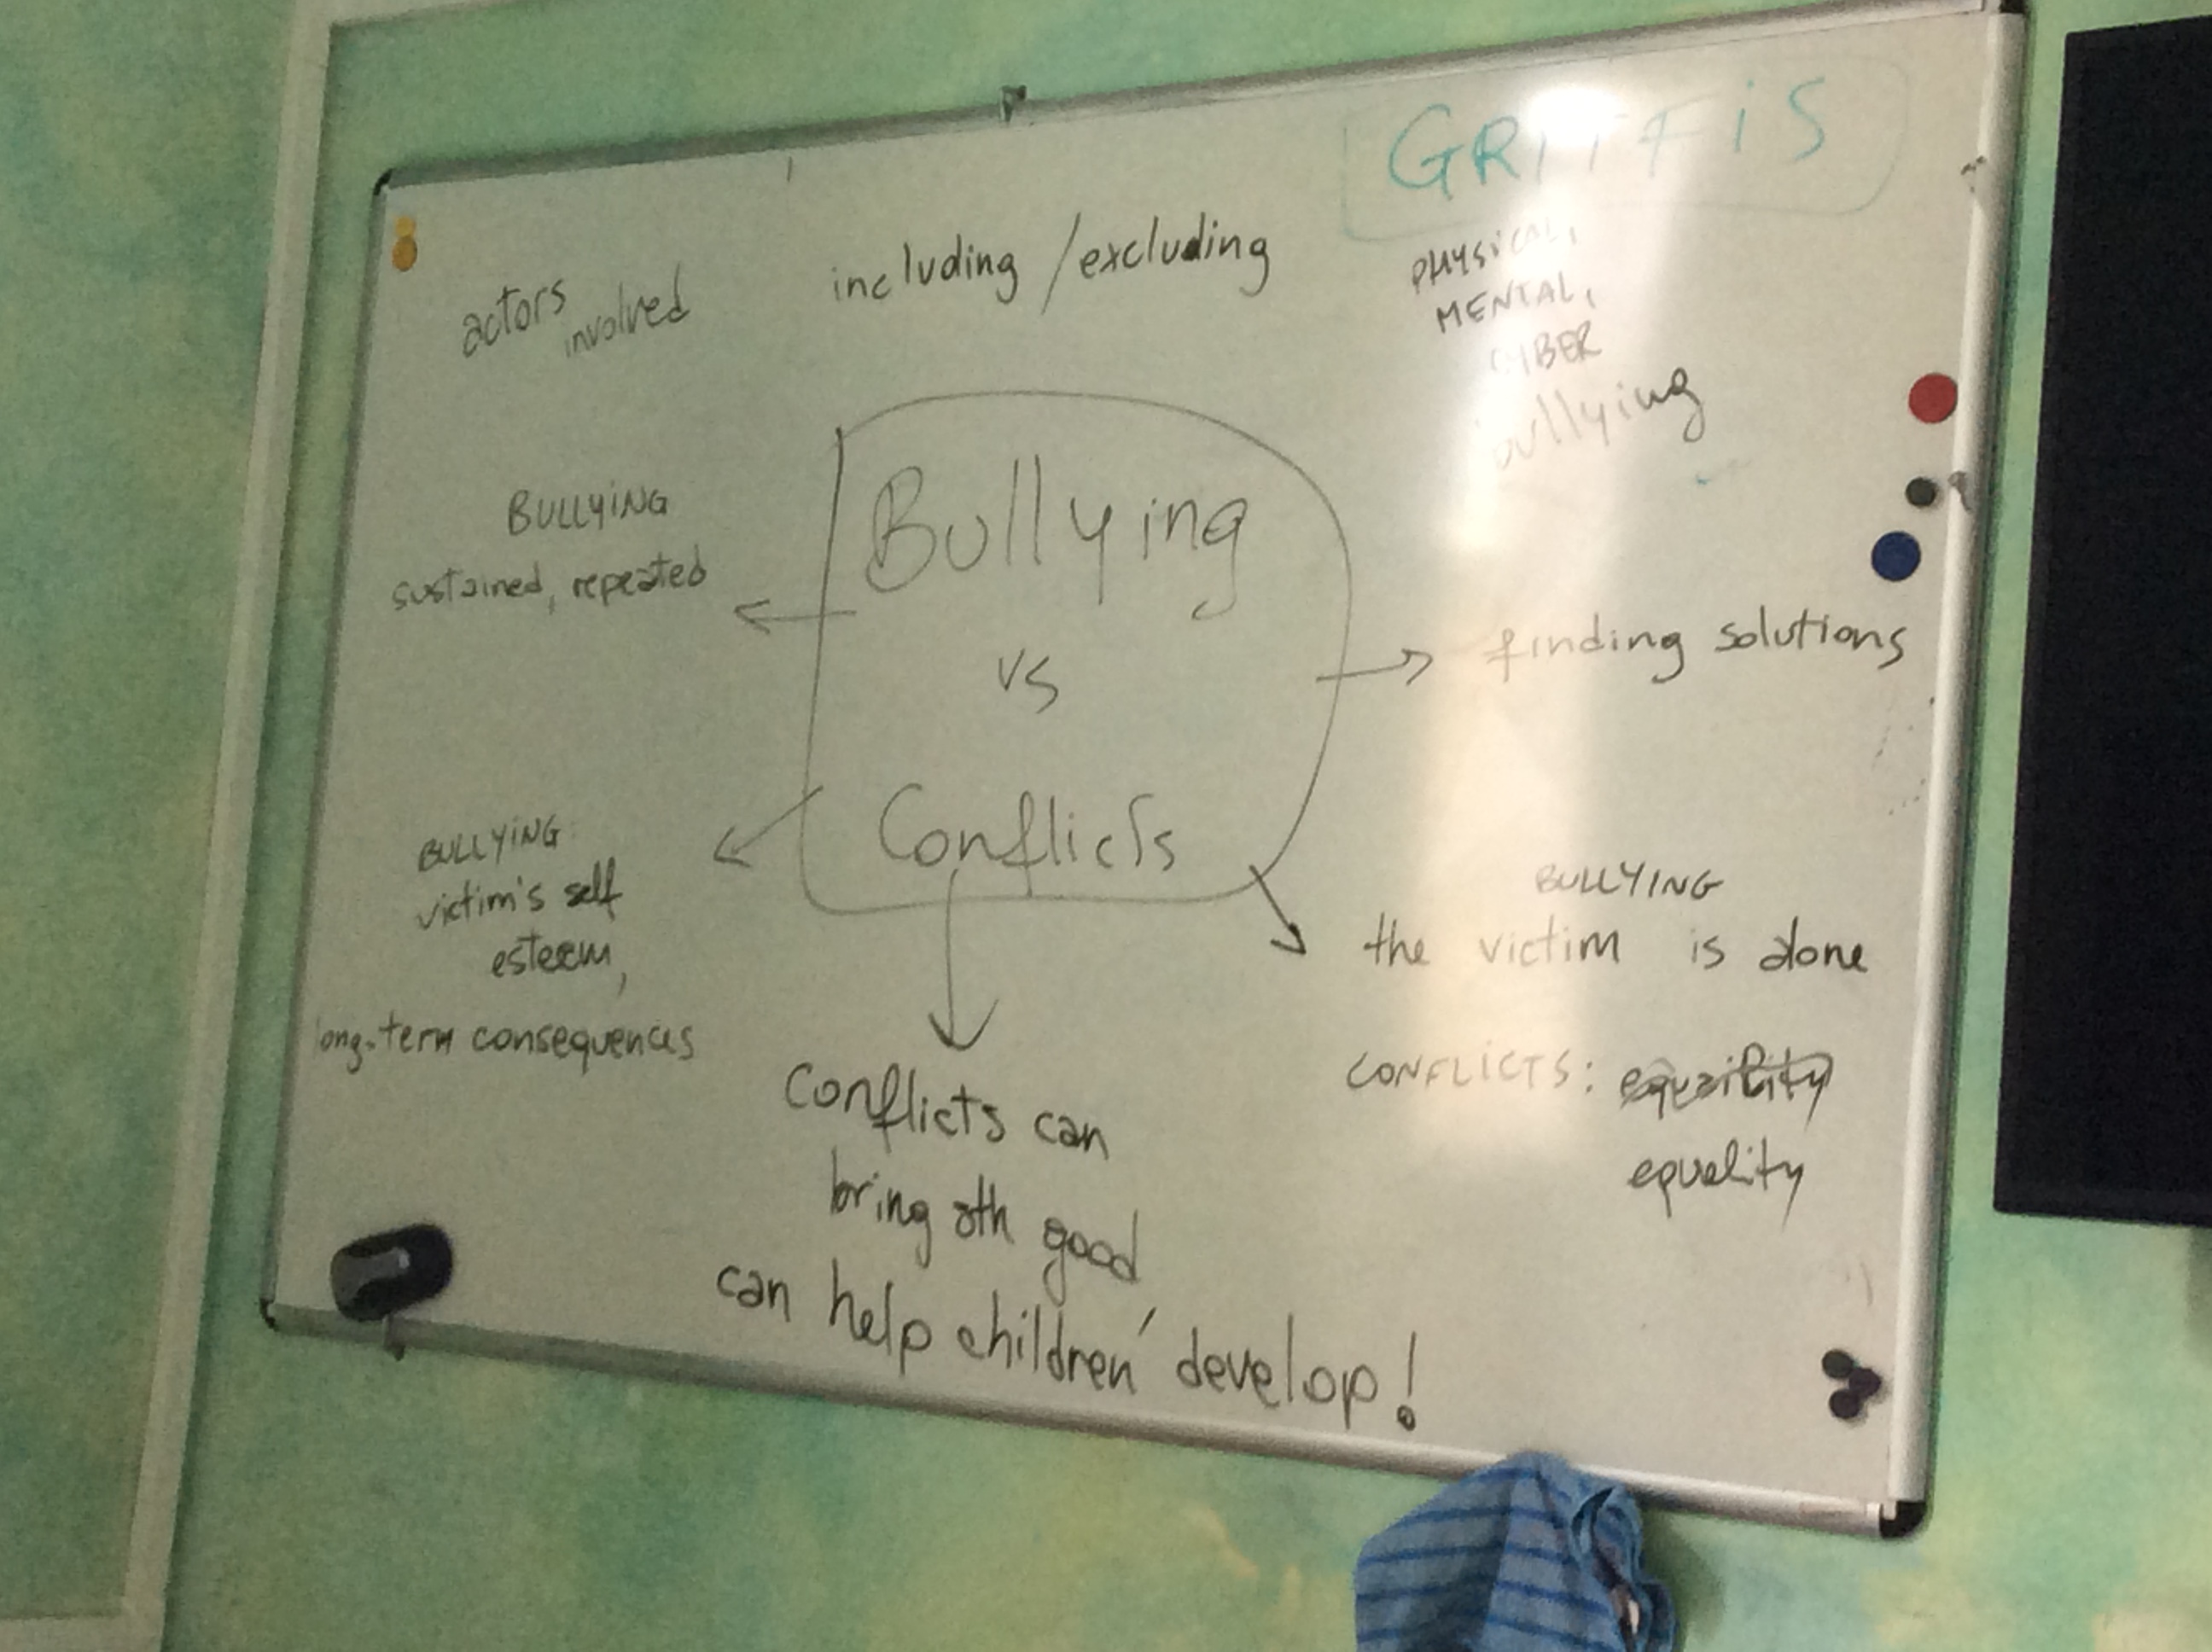 GRIFFIS
actors involved
including / excluding
PHYSICAL,
MENTAL,
CYBER
bullying
BULLYING
sustained, repeated
Bullying
vs
Conflicts
finding solutions
BULLYING:
victim's self
esteem,
long-term consequences
BULLYING
the victim is alone
CONFLICTS:
equality
Conflicts can
bring sth good
can help children' develop!